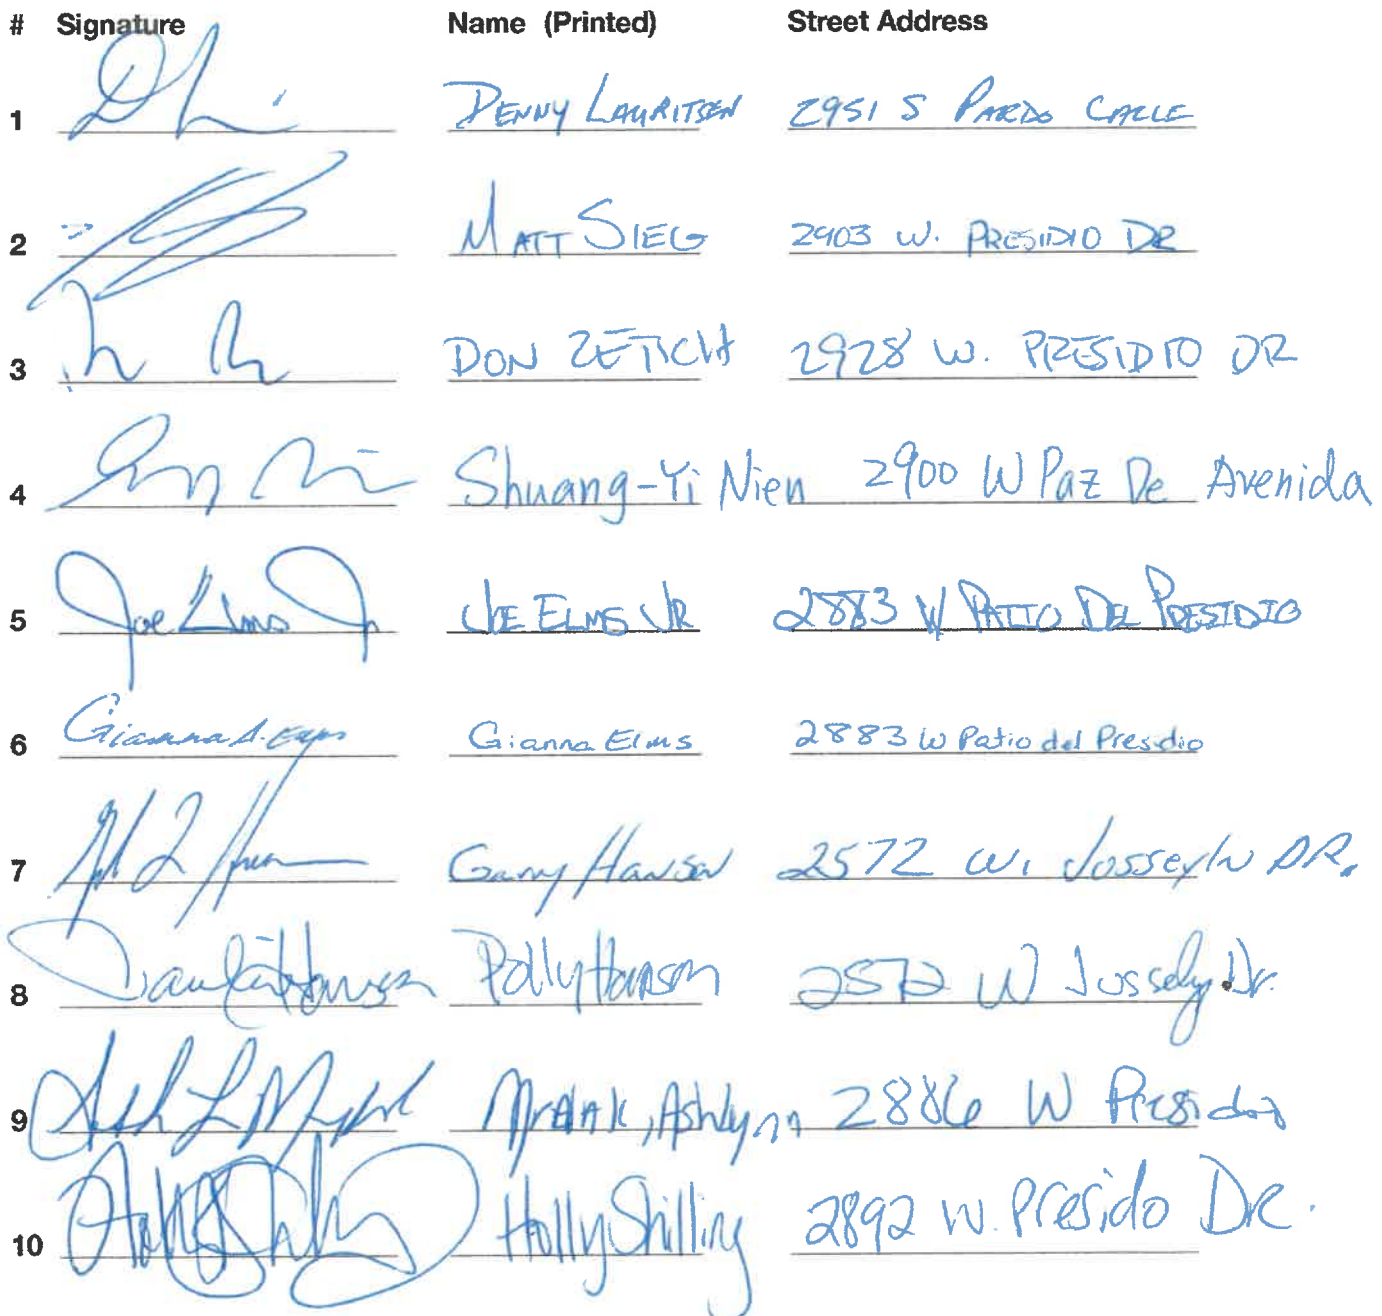 # Signature Name (Printed) Street Address
1 DENNY LAURITSEN 2951 S PARDO CALLE
2 MATT SIEG 2903 W. PRESIDIO DR
3 DON ZETICH 2928 W. PRESIDIO DR
4 Shuang-Yi Nien 2900 W Paz De Avenida
5 Joe Elms Jr JOE ELMS JR 2883 W PATIO DEL PRESIDIO
6 Gianna Gianna Elms 2883 W Patio del Presidio
7 Gary Hanson 2572 W. Josselyn DR.
8 Polly Hanson 2572 W Josselyn Dr.
9 Ashlynn 2886 W Presidio
10 Holly Shilling 2892 W. Presido DR.